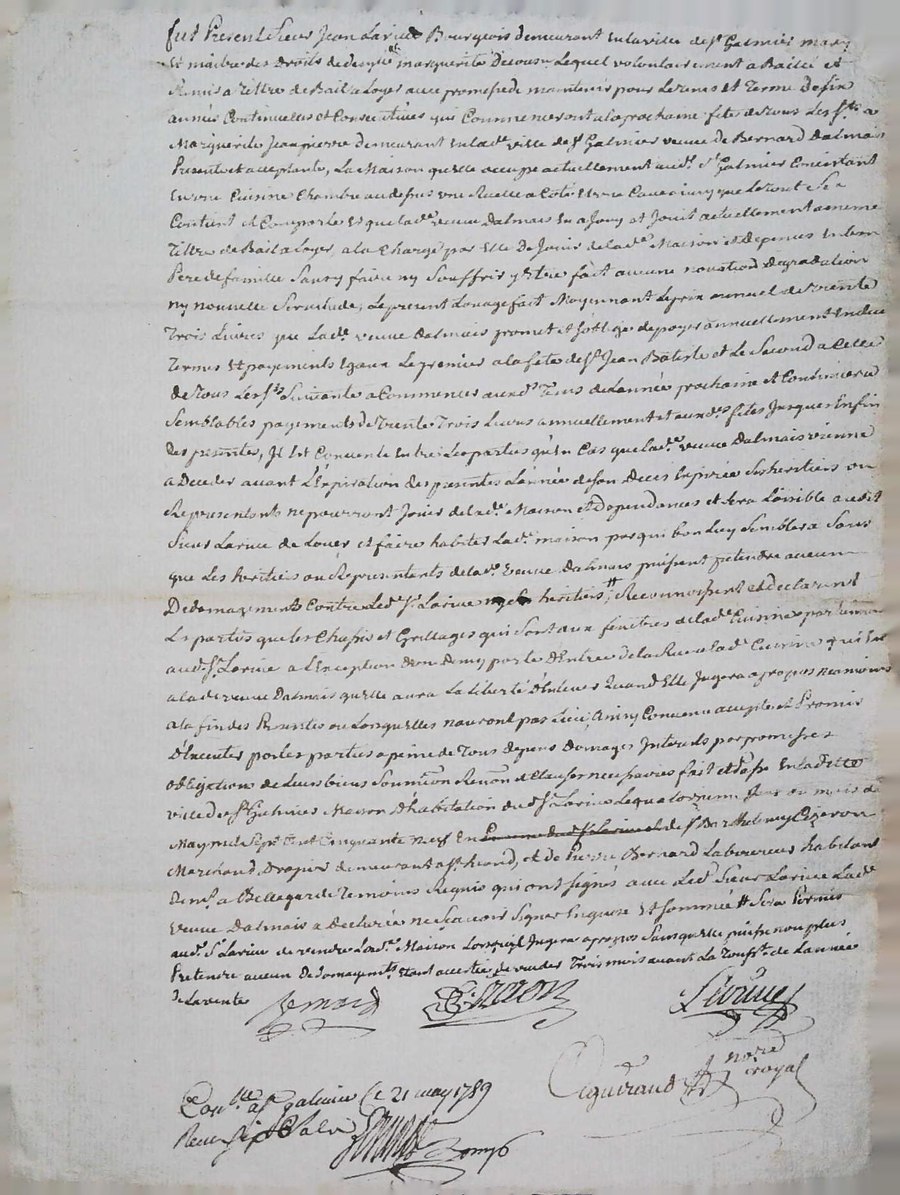 fut Present Sieur Jean Larive Bourgeois demeurant en la ville de St Galmier mary
et maitre des Droits de demlle marguerite Decousu Lequel volontairement a Baillé et
Remis a Tittre de Bail a Loyer avec promesse de maintenir pour le tems et Terme de six
années Continuelles et Consecutives qui Commenceront a la prochaine fete de Tous Les Sts a
Marguerite Jeanpierre demeurant en lade ville de St Galmier veuve de Bernard Dalmais
Presente et acceptante, La Maison quelle occupe actuellement aud. St Galmier Concistant
En une Cuisine Chambre au dessus une Ruelle a Coté et une Cave ainsy que Le tout Se
Contient et Comporte et que lade veuve Dalmais en a Jouy et Jouit actuellement a meme
Tittre de Bail a Loyer, a la Charge par Elle de Jouir de lade Maison et dependces en bon
Pere de famille Sans y faire ny Souffrir y Etre fait aucune novation degradation
ny nouvelle Servitude, Le present Louage fait Moyennant Le prix annuel de Trente
Trois Livres que Lade veuve Dalmais promet et s'oblige de payer annuellement En deux
Termes et payements Egaux Le premier a la fete de St Jean Batiste et Le Second a Celle
de Tous Les Sts Suivante a Commencer auxd. Tems de Lannée prochaine et Continuer a
Semblables payements de Trente Trois Livres annuellement et auxd. fetes Jusques En fin
des presentes, Il Est Convenu Entre Les parties qu'En Cas que lade veuve Dalmais vienne
a Deceder avant L'Expiration des presentes L'année de son Deces Expirée Ses heritiers ou
Representants ne pourront Jouir de lade Maison et Dependances et sera Loisible audit
Sieur Larive de Louer et faire habiter Lade maison par qui bon Luy Semblera Sans
que Les heritiers ou Representants de lade veuve Dalmais puissent pretendre aucun
Dedomagement Contre Led. Sr Larive heritiers # Reconnoissent et declarent
Les parties que les Chassis et Grillages qui Sont aux fenetres de lade Cuisine
aud. Sr Larive a L'Exception d'un demy porte d'Entrée de la Rue a lade Cuisine qui Est
a lade veuve Dalmais quelle aura La Liberté d'Enlever Quand Elle Jugera a propos neamoins
a la fin des Presentes ou Lorsqu'elles nauront pas Lieu, ainsy Convenu accepté et Promis
d'Executer par les parties a peine de Tous depens Domages Interets par promesses
obligation de Leurs biens Soumission Renon. et Clauses necessaires fait et passé En laditte
ville de St Galmier Maison d'habitation dud. Sr Larive Le quatorzieme Jour du mois de
May mil Sept Cent Cinquante neuf En de Sr Barthelemy Cizeron
Marchand Drapier demeurant a St heand, et de Pierre Bernard Laboureur habitant
a Bellegarde Temoins Requis qui ont signés avec Led. Sieur Larive Lade
veuve Dalmais a Declarée ne Sçavoir Signer Enquise et Sommée # Sera Permis
aud. Sr Larive de vendre Lade Maison Lorsqu'il Jugera a propos Sans quelle puisse non plus
Pretendre aucun Dedomagemt Etant avertie de vuider Trois mois avant La Toust. de Lannée
de la vente
Bernard Cizeron Larive
Aguiraud nore royal
Conlle a St galmier le 21 may 1759
Reçu